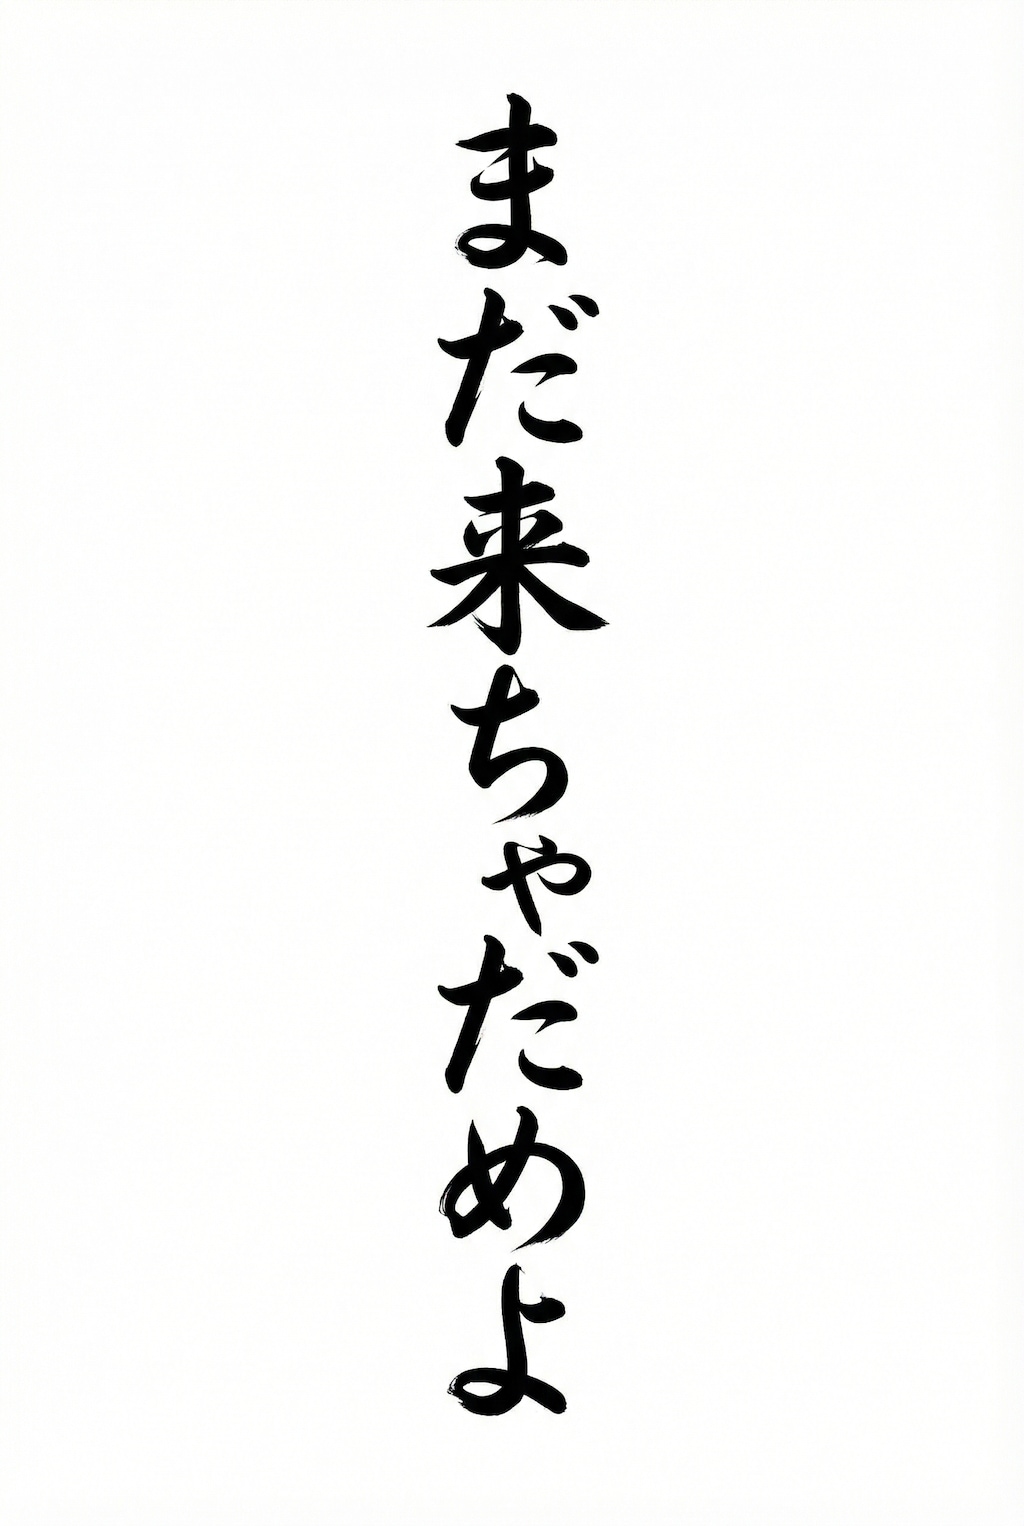 まだ来ちゃだめよ